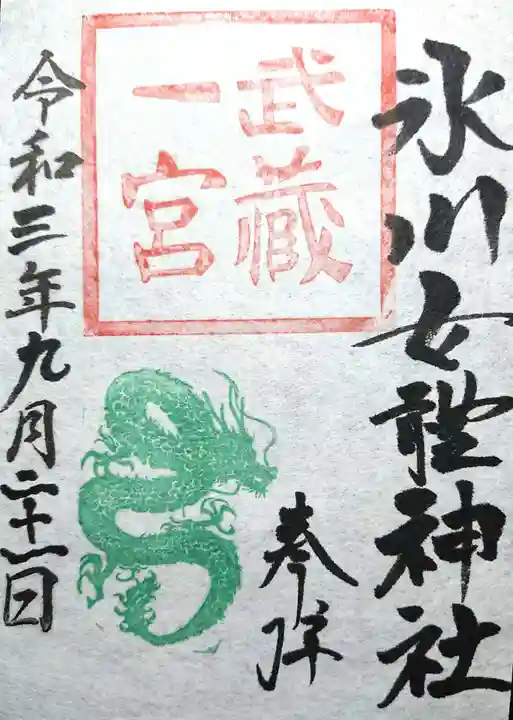 氷川女體神社
奉拝
武蔵
一宮
令和三年九月二十一日